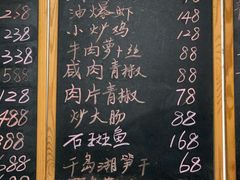 238 油爆虾 148
338 小炒鸡 48
338 牛肉萝卜丝 88
588 咸肉青椒 88
128 肉片青椒 78
488 炒大肠 88
588 石斑鱼 168
688 千岛湖笋干 68